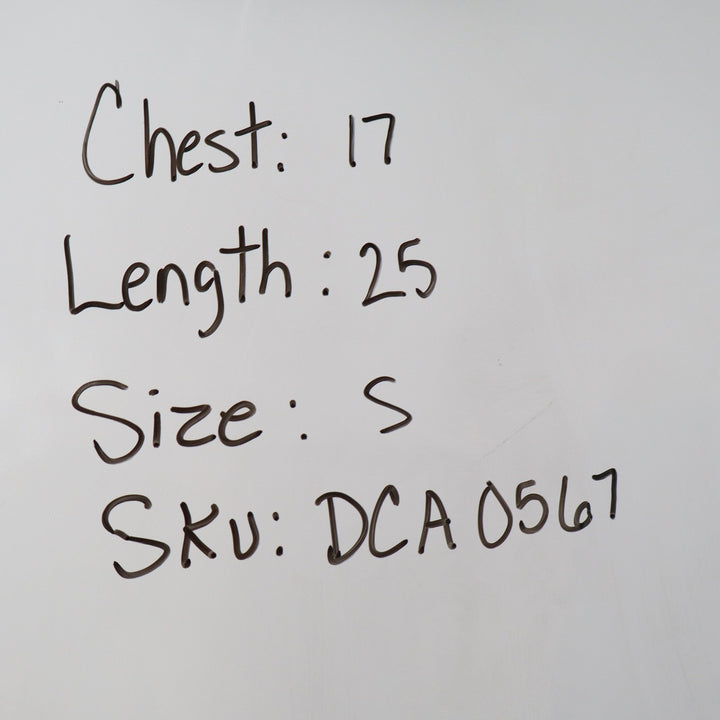 Chest: 17
Length: 25
Size: S
SKU: DCA0567